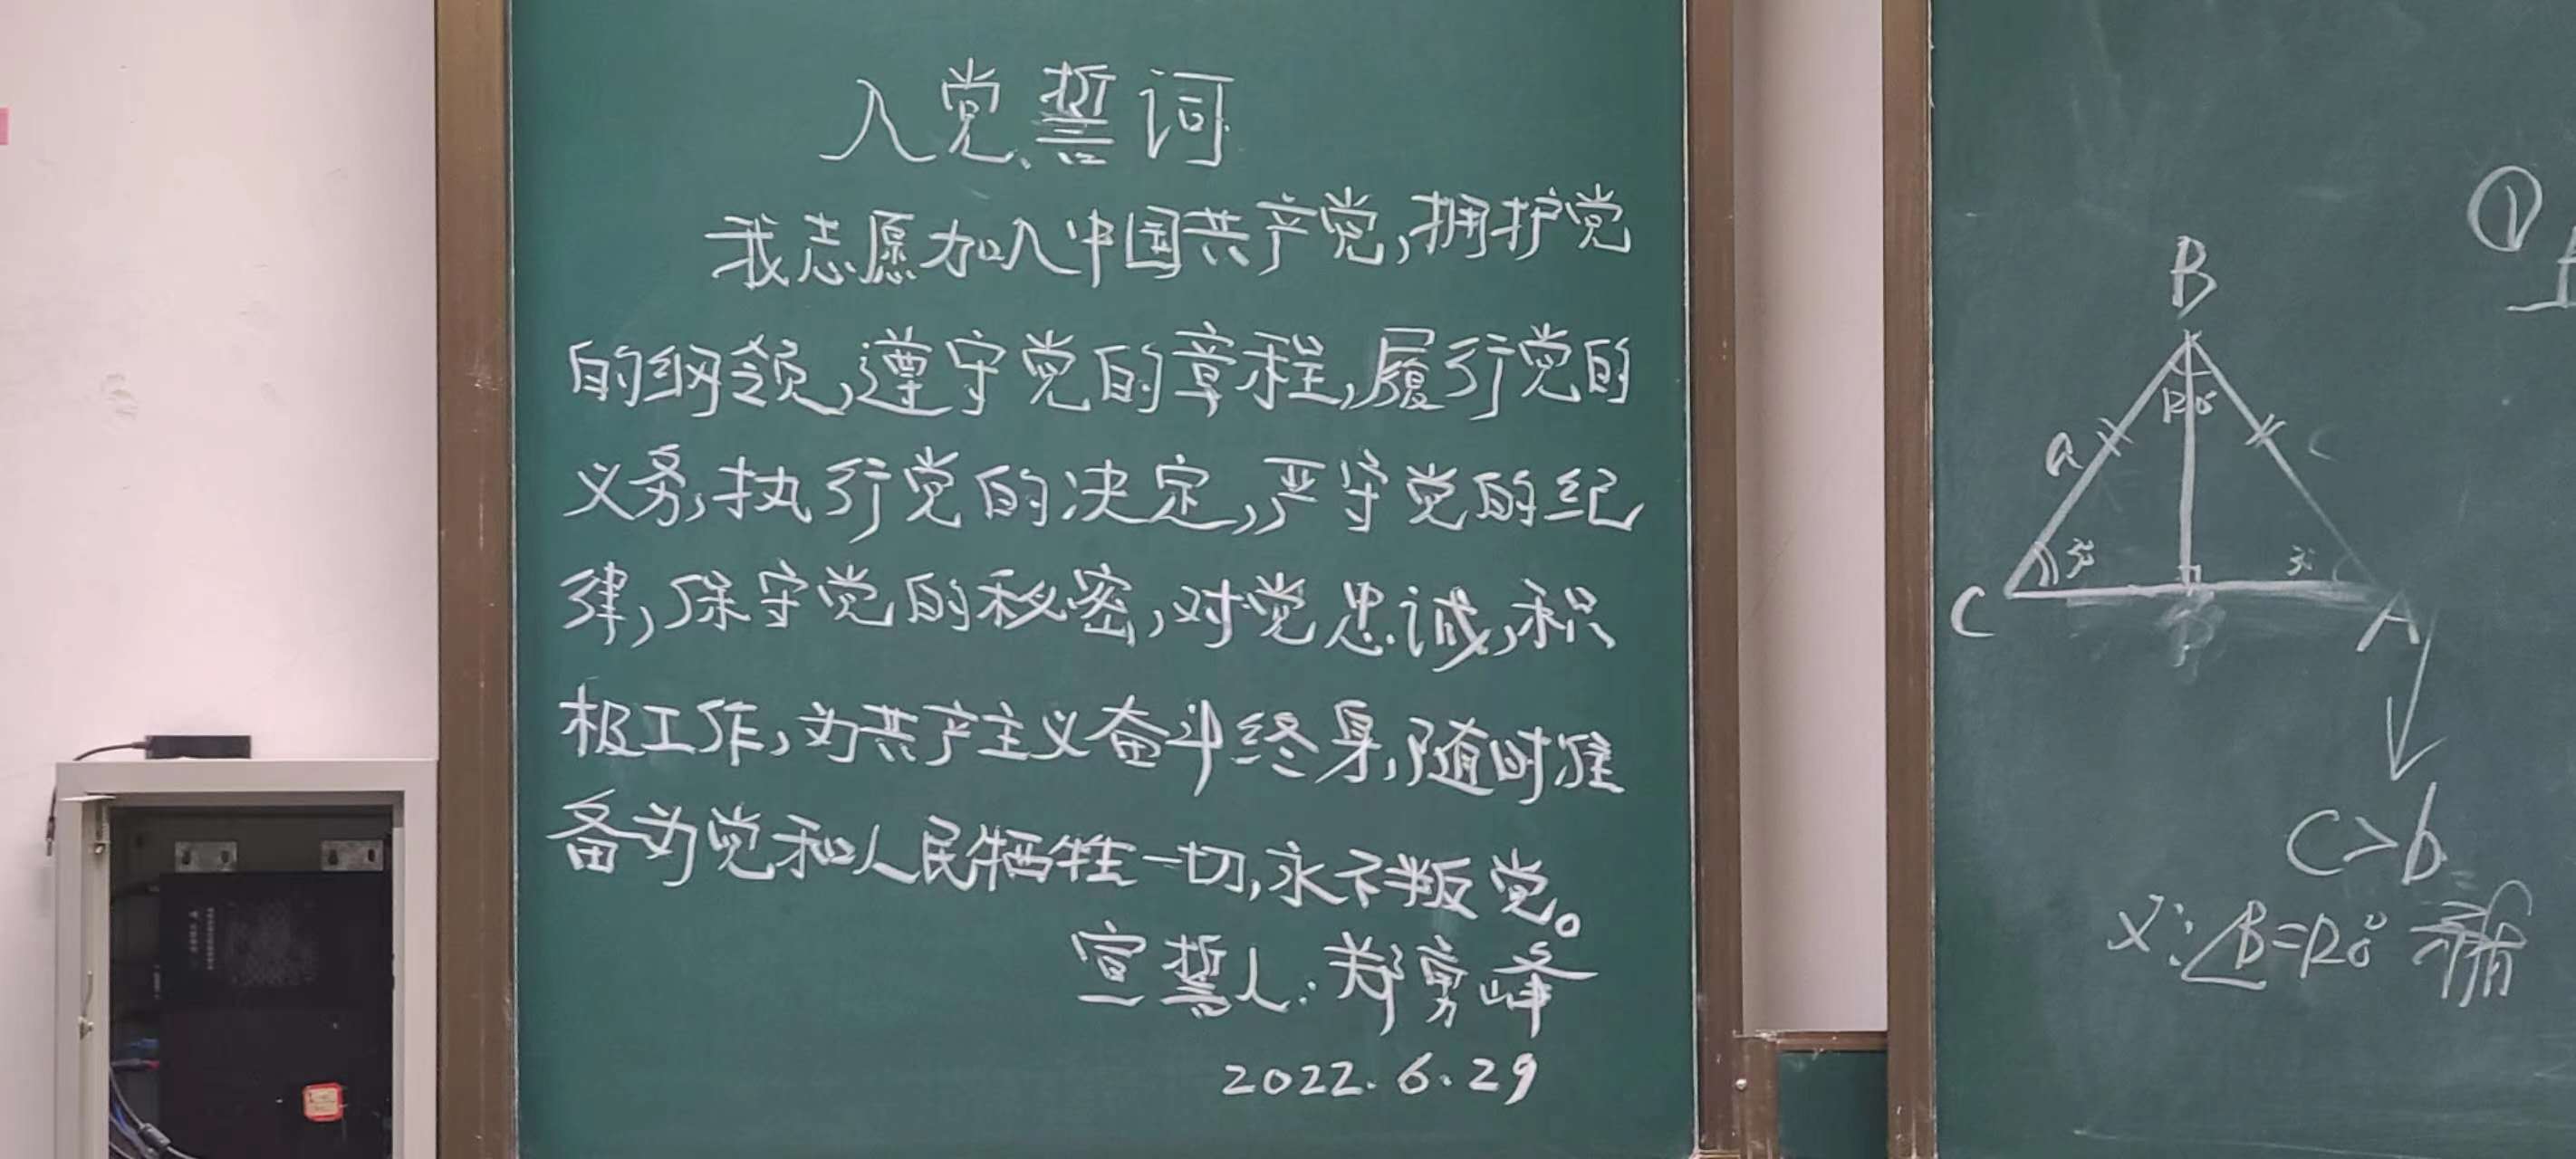 入党誓词
我志愿加入中国共产党,拥护党
的纲领,遵守党的章程,履行党的
义务,执行党的决定,严守党的纪
律,保守党的秘密,对党忠诚,积
极工作,为共产主义奋斗终身,随时准
备为党和人民牺牲一切,永不叛党。
宣誓人:郑勇峰
2022.6.29
①
B
120°
a
c
C
D
A
C>b
又∵∠B=120°